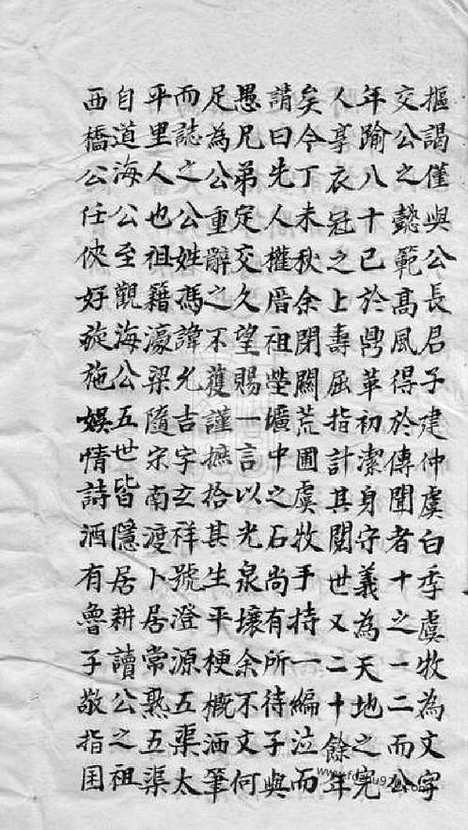 摳謁僅與公長君子建仲虞白季虞牧為文字
交公之懿範髙風得於傳聞者十之一二而公
年踰八十已於鼎革初潔身守義為天地之完
人享衣冠之上壽屈指計其閱世又二十餘年
矣今丁未秋余閉關荒圃虞牧手持一編泣而
請曰先人權厝祖塋壙中之石尚有所待子與
愚兄弟定交久望賜一言以光泉壤余不文何
足為公重辭之不獲謹摭拾其生平梗概洒筆
而誌之公姓馮諱允吉字玄祥號澄源五渠太
平里人也祖籍濠梁隨宋南渡卜居常熟五渠
自道海公至觀海公五世皆隱居耕讀公之祖
西橋公任俠好施娛情詩酒有魯子敬指囷